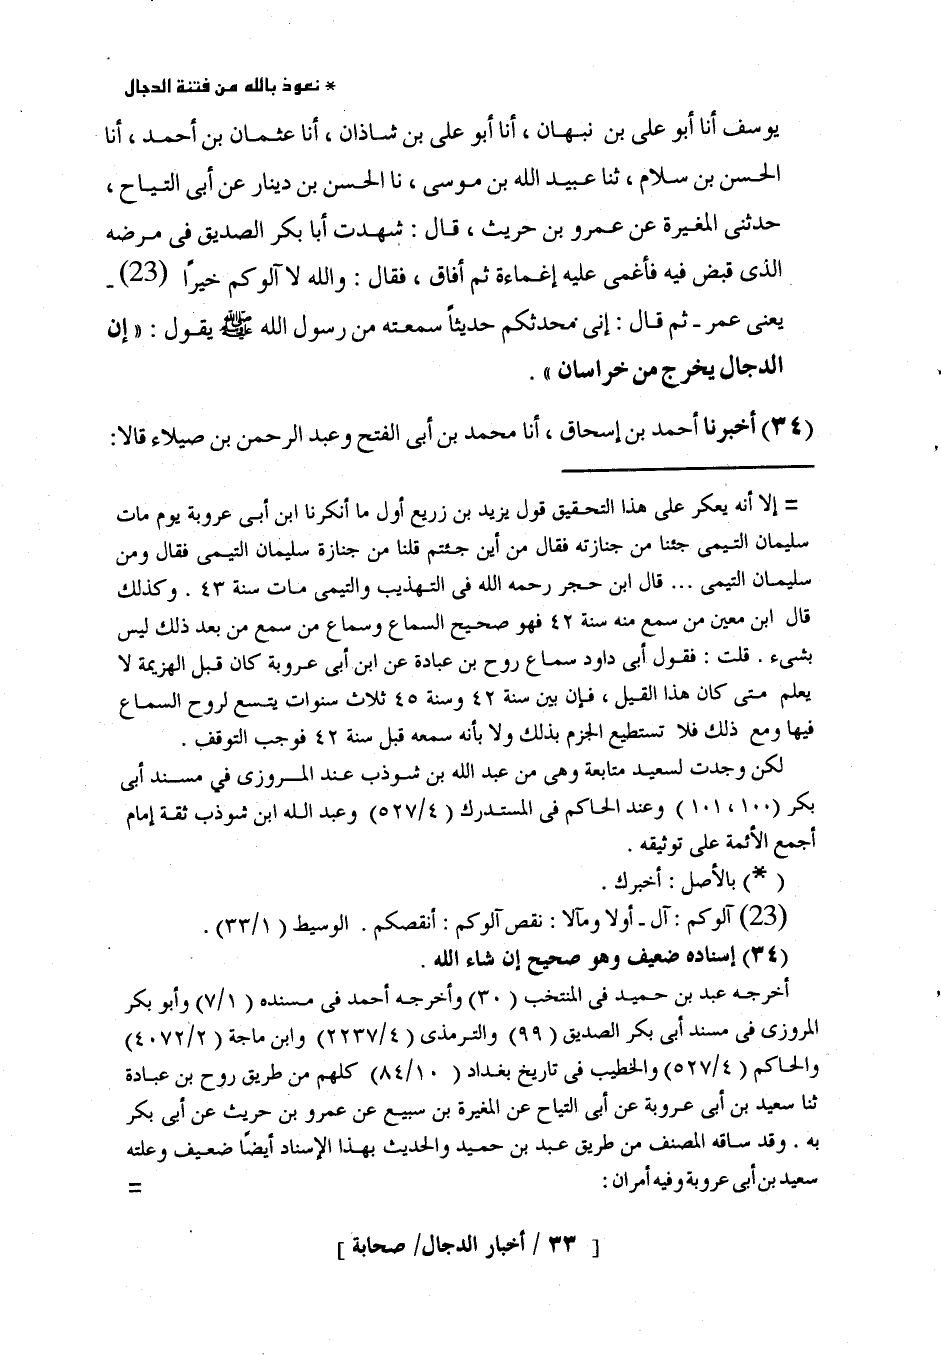 * نعوذ بالله من فتنة الدجال
يوسف أنا أبو على بن نبهان ، أنا أبو على بن شاذان ، أنا عثمان بن أحمد ، أنا
الحسن بن سلام ، ثنا عبيد الله بن موسى ، نا الحسن بن دينار عن أبى التياح ،
حدثنى المغيرة عن عمرو بن حريث ، قال : شهدت أبا بكر الصديق فى مرضه
الذى قبض فيه فأغمى عليه إغماءة ثم أفاق ، فقال : والله لا آلوكم خيرًا (23) ـ
يعنى عمر ـ ثم قال : إنى محدثكم حديثاً سمعته من رسول الله ﷺ يقول : « إن
الدجال يخرج من خراسان » .
(٣٤) أخبرنا أحمد بن إسحاق ، أنا محمد بن أبى الفتح وعبد الرحمن بن صيلاء قالا:
= إلا أنه يعكر على هذا التحقيق قول يزيد بن زريع أول ما أنكرنا ابن أبى عروبة يوم مات
سليمان التيمى جئنا من جنازته فقال من أين جئتم قلنا من جنازة سليمان التيمى فقال ومن
سليمان التيمى ... قال ابن حجر رحمه الله فى التهذيب والتيمى مات سنة ٤٣ . وكذلك
قال ابن معين من سمع منه سنة ٤٢ فهو صحيح السماع وسماع من سمع من بعد ذلك ليس
بشىء . قلت : فقول أبى داود سماع روح بن عبادة عن ابن أبى عروبة كان قبل الهزيمة لا
يعلم متى كان هذا القيل ، فإن بين سنة ٤٢ وسنة ٤٥ ثلاث سنوات يتسع لروح السماع
فيها ومع ذلك فلا تستطيع الجزم بذلك ولا بأنه سمعه قبل سنة ٤٢ فوجب التوقف .
لكن وجدت لسعيد متابعة وهى من عبد الله بن شوذب عند المروزى في مسند أبى
بكر (١٠٠ ، ١٠١ ) وعند الحاكم فى المستدرك ( ٥٢٧/٤) وعبد الله ابن شوذب ثقة إمام
أجمع الأئمة على توثيقه .
( *) بالأصل : أخبرك .
(23) آلوكم : آل ـ أولا ومآلا : نقص آلوكم : أنقصكم . الوسيط ( ٣٣/١) .
(٣٤) إسناده ضعيف وهو صحيح إن شاء الله .
أخرجه عبد بن حميد فى المنتخب ( ٣٠) وأخرجه أحمد فى مسنده ( ٧/١) وأبو بكر
المروزى فى مسند أبى بكر الصديق ( ٩٩) والترمذى ( ٢٢٣٧/٤) وابن ماجة ( ٤٠٧٢/٢)
والحاكم ( ٥٢٧/٤) والخطيب فى تاريخ بغداد ( ٨٤/١٠) كلهم من طريق روح بن عبادة
ثنا سعيد بن أبى عروبة عن أبى التياح عن المغيرة بن سبيع عن عمرو بن حريث عن أبى بكر
به . وقد ساقه المصنف من طريق عبد بن حميد والحديث بهذا الإسناد أيضًا ضعيف وعلته
سعيد بن أبى عروبة وفيه أمران : =
[ ٣٣ / أخبار الدجال/ صحابة ]